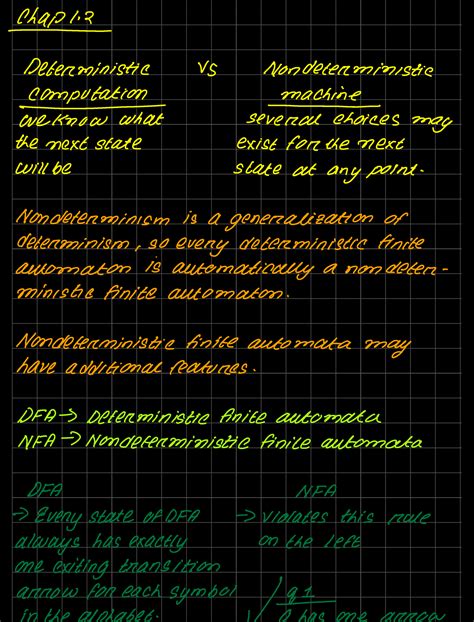 Chap 1.2
Deterministic vs Nondeterministic
computation machine
we know what several choices may
the next state exist for the next
will be state at any point.
Nondeterminism is a generalization of
determinism, so every deterministic finite
automaton is automatically a nondeter-
ministic finite automaton.
Nondeterministic finite automata may
have additional features.
DFA → Deterministic finite automata
NFA → Nondeterministic finite automata
DFA NFA
→ Every state of DFA → Violates this rule
always has exactly on the left
one exiting transition
arrow for each symbol q1
in the alphabet. 0 has one arrow